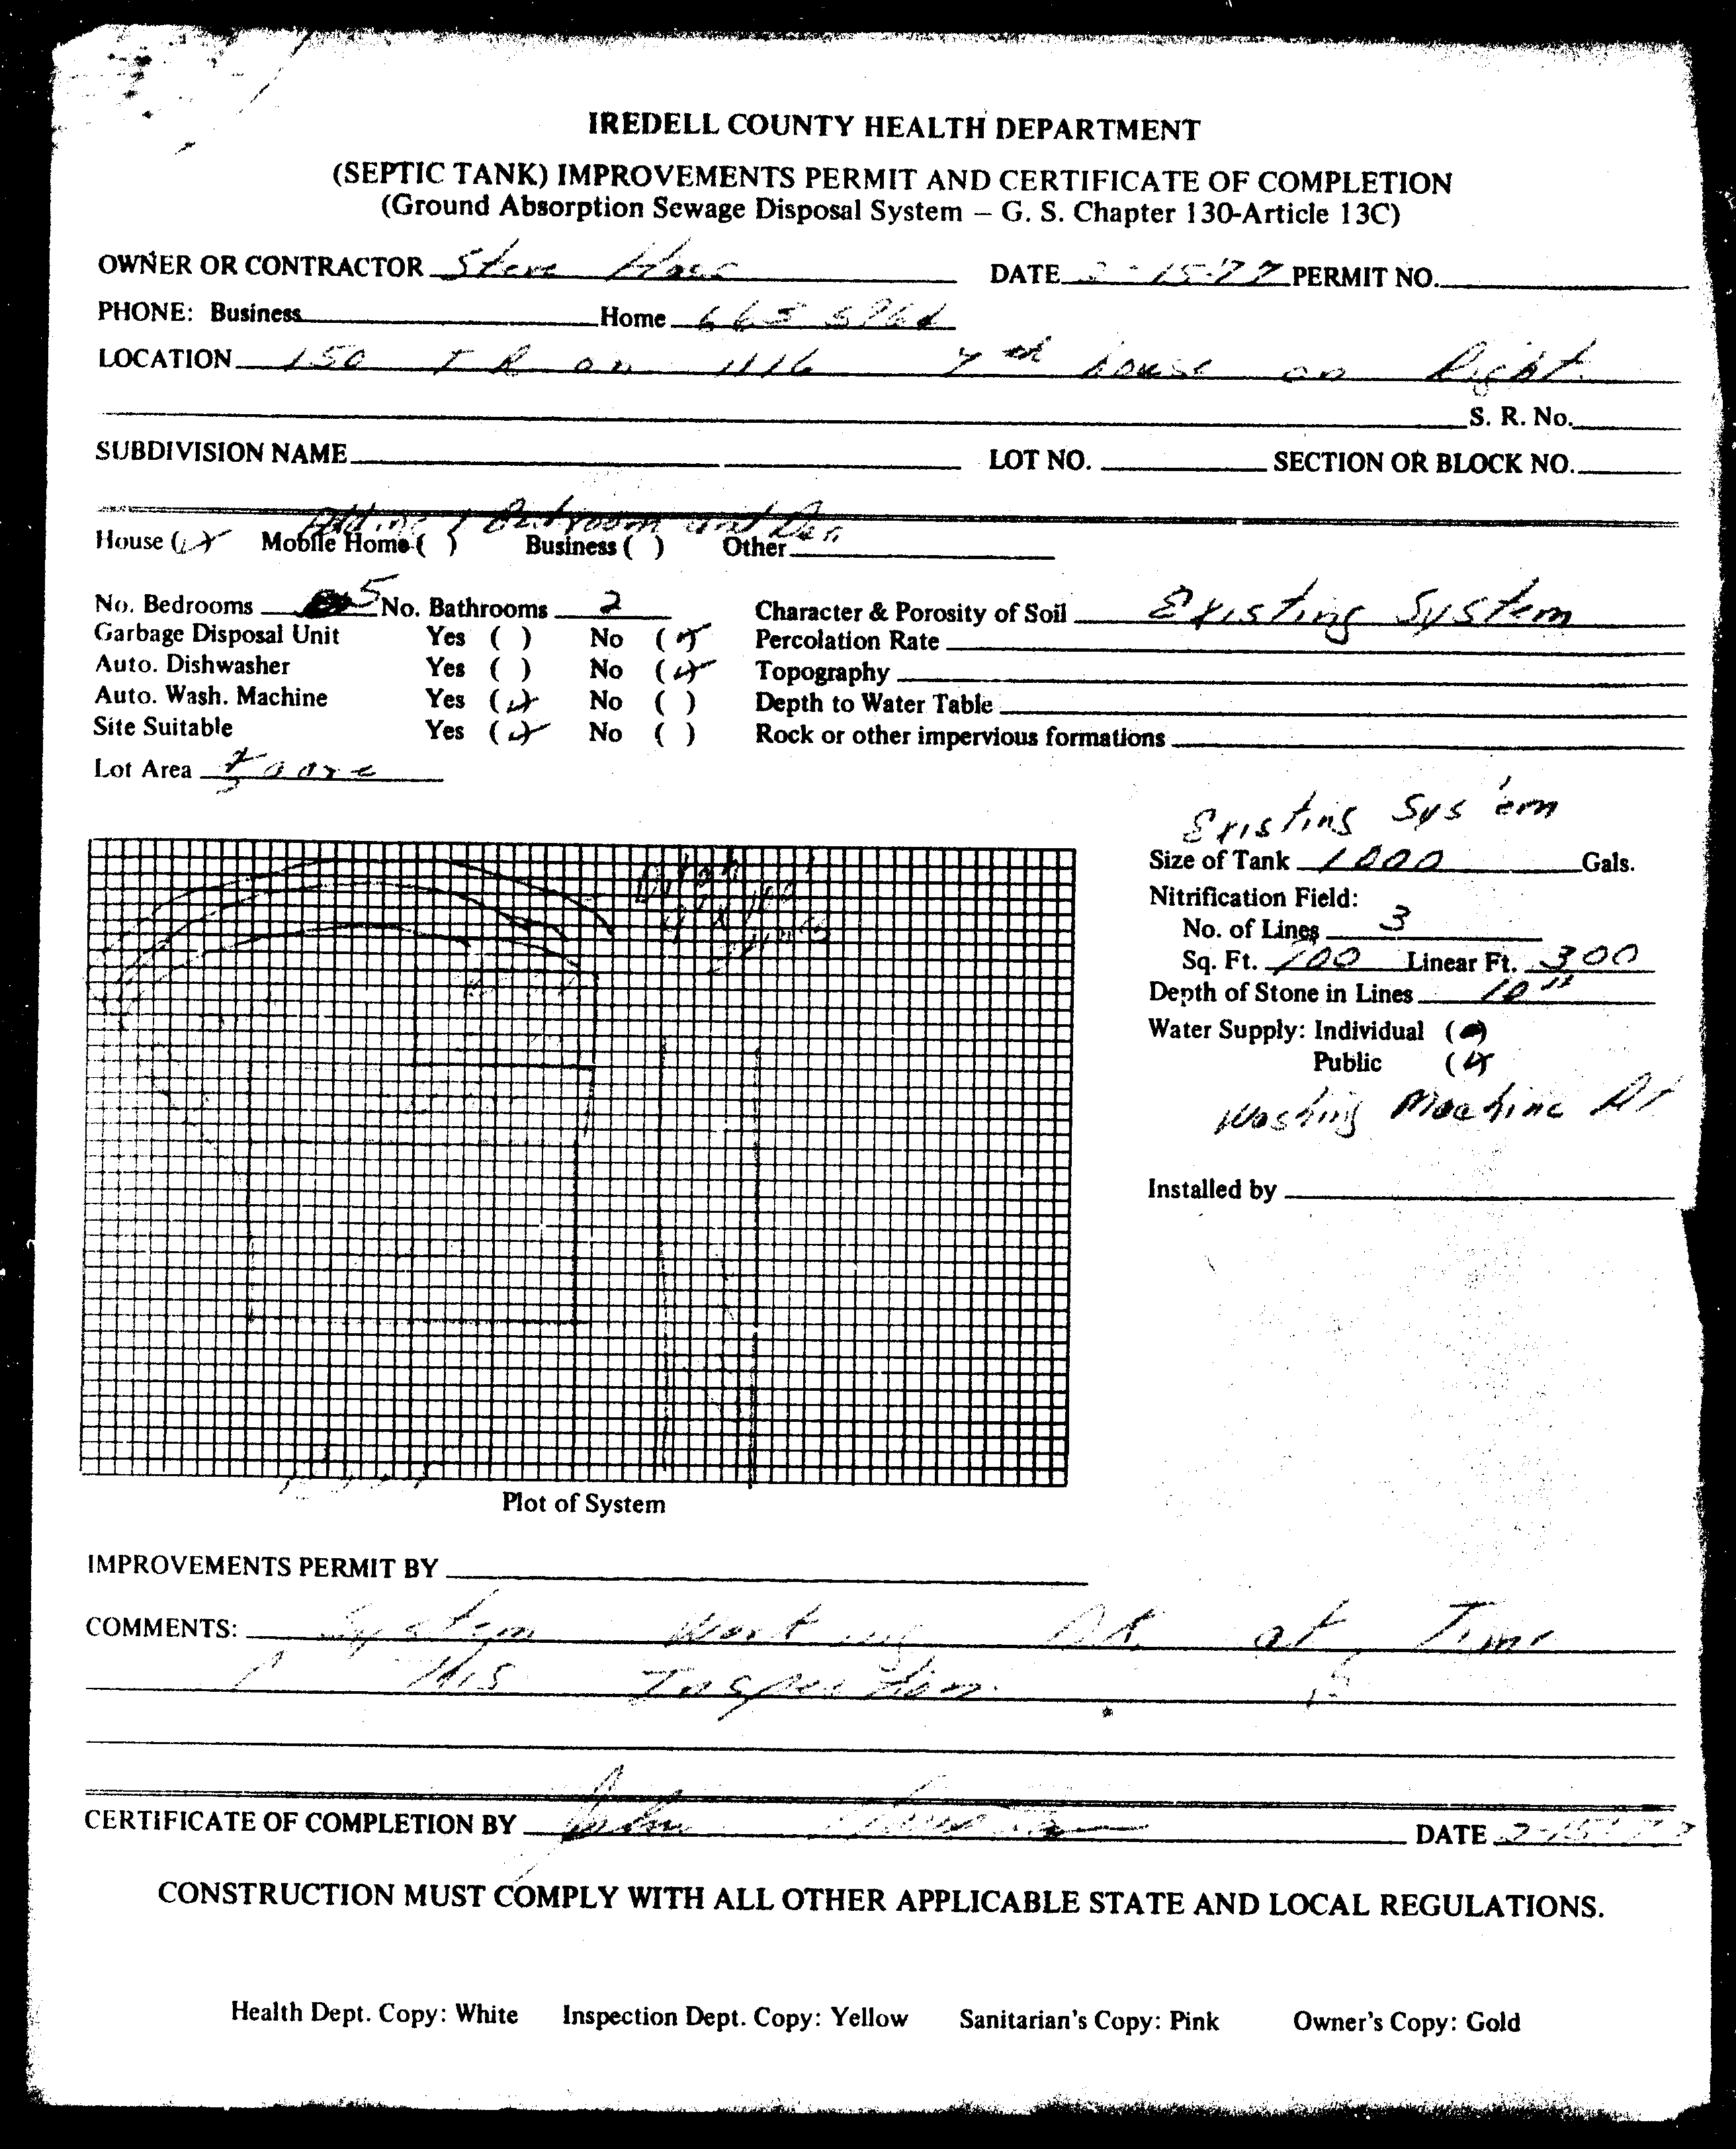 IREDELL COUNTY HEALTH DEPARTMENT
(SEPTIC TANK) IMPROVEMENTS PERMIT AND CERTIFICATE OF COMPLETION
(Ground Absorption Sewage Disposal System – G. S. Chapter 130-Article 13C)
OWNER OR CONTRACTOR Steve DATE 2-15-77 PERMIT NO.
PHONE: Business Home 663
LOCATION 150 T R on 1116 7th house on Right
S. R. No.
SUBDIVISION NAME LOT NO. SECTION OR BLOCK NO.
Adding 1 Bedroom and Den
House (✓) Mobile Home ( ) Business ( ) Other
No. Bedrooms 5 No. Bathrooms 2 Character & Porosity of Soil Existing System
Garbage Disposal Unit Yes ( ) No (✓) Percolation Rate
Auto. Dishwasher Yes ( ) No (✓) Topography
Auto. Wash. Machine Yes (✓) No ( ) Depth to Water Table
Site Suitable Yes (✓) No ( ) Rock or other impervious formations
Lot Area acre
Existing System
Size of Tank 1000 Gals.
Nitrification Field:
No. of Lines 3
Sq. Ft. 100 Linear Ft. 300
Depth of Stone in Lines 10"
Water Supply: Individual ( )
Public (✓)
Washing Machine
Installed by
Plot of System
IMPROVEMENTS PERMIT BY
COMMENTS: System Working OK at Time
this Inspection.
CERTIFICATE OF COMPLETION BY John DATE 2-15-77
CONSTRUCTION MUST COMPLY WITH ALL OTHER APPLICABLE STATE AND LOCAL REGULATIONS.
Health Dept. Copy: White Inspection Dept. Copy: Yellow Sanitarian's Copy: Pink Owner's Copy: Gold